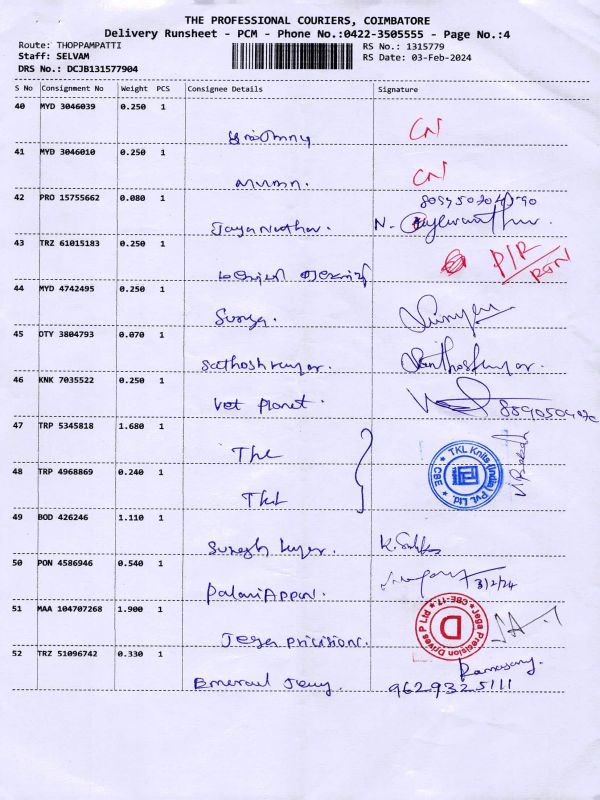 THE PROFESSIONAL COURIERS, COIMBATORE
Delivery Runsheet - PCM - Phone No.:0422-3505555 - Page No.:4
Route: THOPPAMPATTI
RS No.: 1315779
Staff: SELVAM
RS Date: 03-Feb-2024
DRS No.: DCJB131577904
S No Consignment No Weight PCS Consignee Details Signature
40 MYD 3046039 0.250 1
CN
41 MYD 3046010 0.250 1
CN
42 PRO 15755662 0.080 1
N.
43 TRZ 61015183 0.250 1
P/R
44 MYD 4742495 0.250 1
Surya.
45 DTY 3804793 0.070 1
Sathosh kumar Santhoshkumar.
46 KNK 7035522 0.250 1
Vet planet.
47 TRP 5345818 1.680 1
The
TKL Knits (India) Pvt. Ltd. CBE
48 TRP 4968869 0.240 1
TKL
49 BOD 426246 1.110 1
Suresh kumar.
50 PON 4586946 0.540 1
PalaniAppan. 3/2/24
51 MAA 104707268 1.900 1
Jega Precision Drives P Ltd CBE-17 D
52 TRZ 51096742 0.330 1
Ramasamy.
9629325111